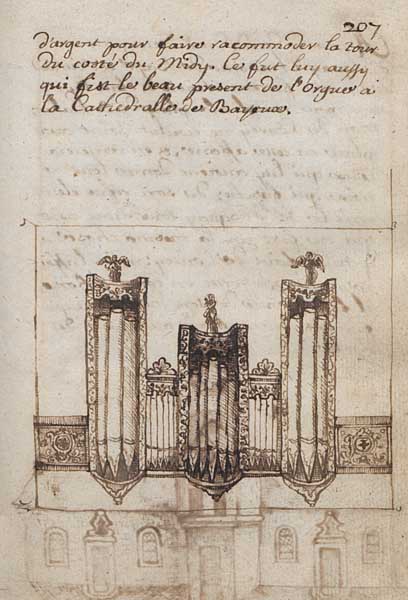 207
d'argent pour faire racommoder la tour
du costé du Midy. Ce fut luy aussy
qui fist le beau present de l'Orgue à
la Cathedralle de Bayeux.